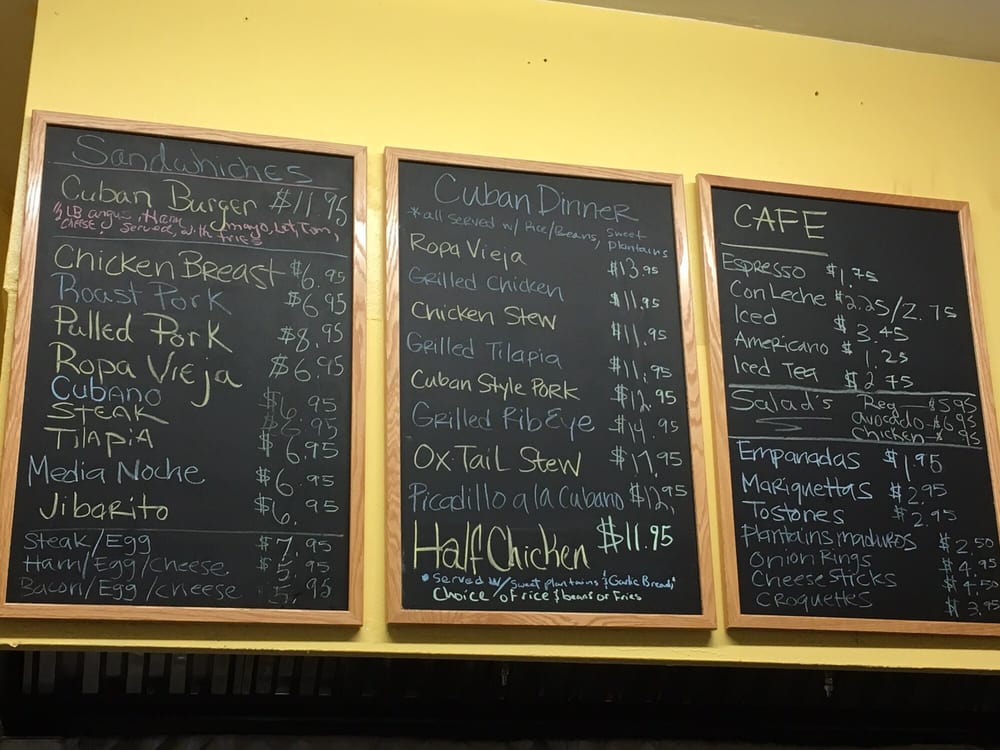 Sandwhiches
Cuban Burger $11.95
1/2 LB angus, Ham, mayo, Let, Tom,
CHEESE, Served with fries
Chicken Breast $6.95
Roast Pork $6.95
Pulled Pork $8.95
Ropa Vieja $6.95
Cubano $6.95
Steak $6.95
Tilapia $6.95
Media Noche $6.95
Jibarito $6.95
Steak/Egg $7.95
Ham/Egg/cheese $5.95
Bacon/Egg/cheese 5.95
Cuban Dinner
*all served w/ Rice/Beans, Sweet
plantains
Ropa Vieja $13.95
Grilled Chicken $11.95
Chicken Stew $11.95
Grilled Tilapia $11.95
Cuban Style Pork $12.95
Grilled RibEye $14.95
Ox Tail Stew $17.95
Picadillo a la Cubano $12.95
Half Chicken $11.95
*Served w/ Sweet plantains & Garlic Bread*
Choice of rice & beans or Fries
CAFE
Espresso $1.75
Con Leche $2.25/2.75
Iced $3.45
Americano $1.25
Iced Tea $2.75
Salad's Reg — $5.95
avocado - $6.95
chicken - $ .95
Empanadas $1.95
Mariquettas $2.95
Tostones $2.95
Plantains maduros $2.50
Onion Rings $4.95
Cheese sticks $4.50
Croquettes $3.95